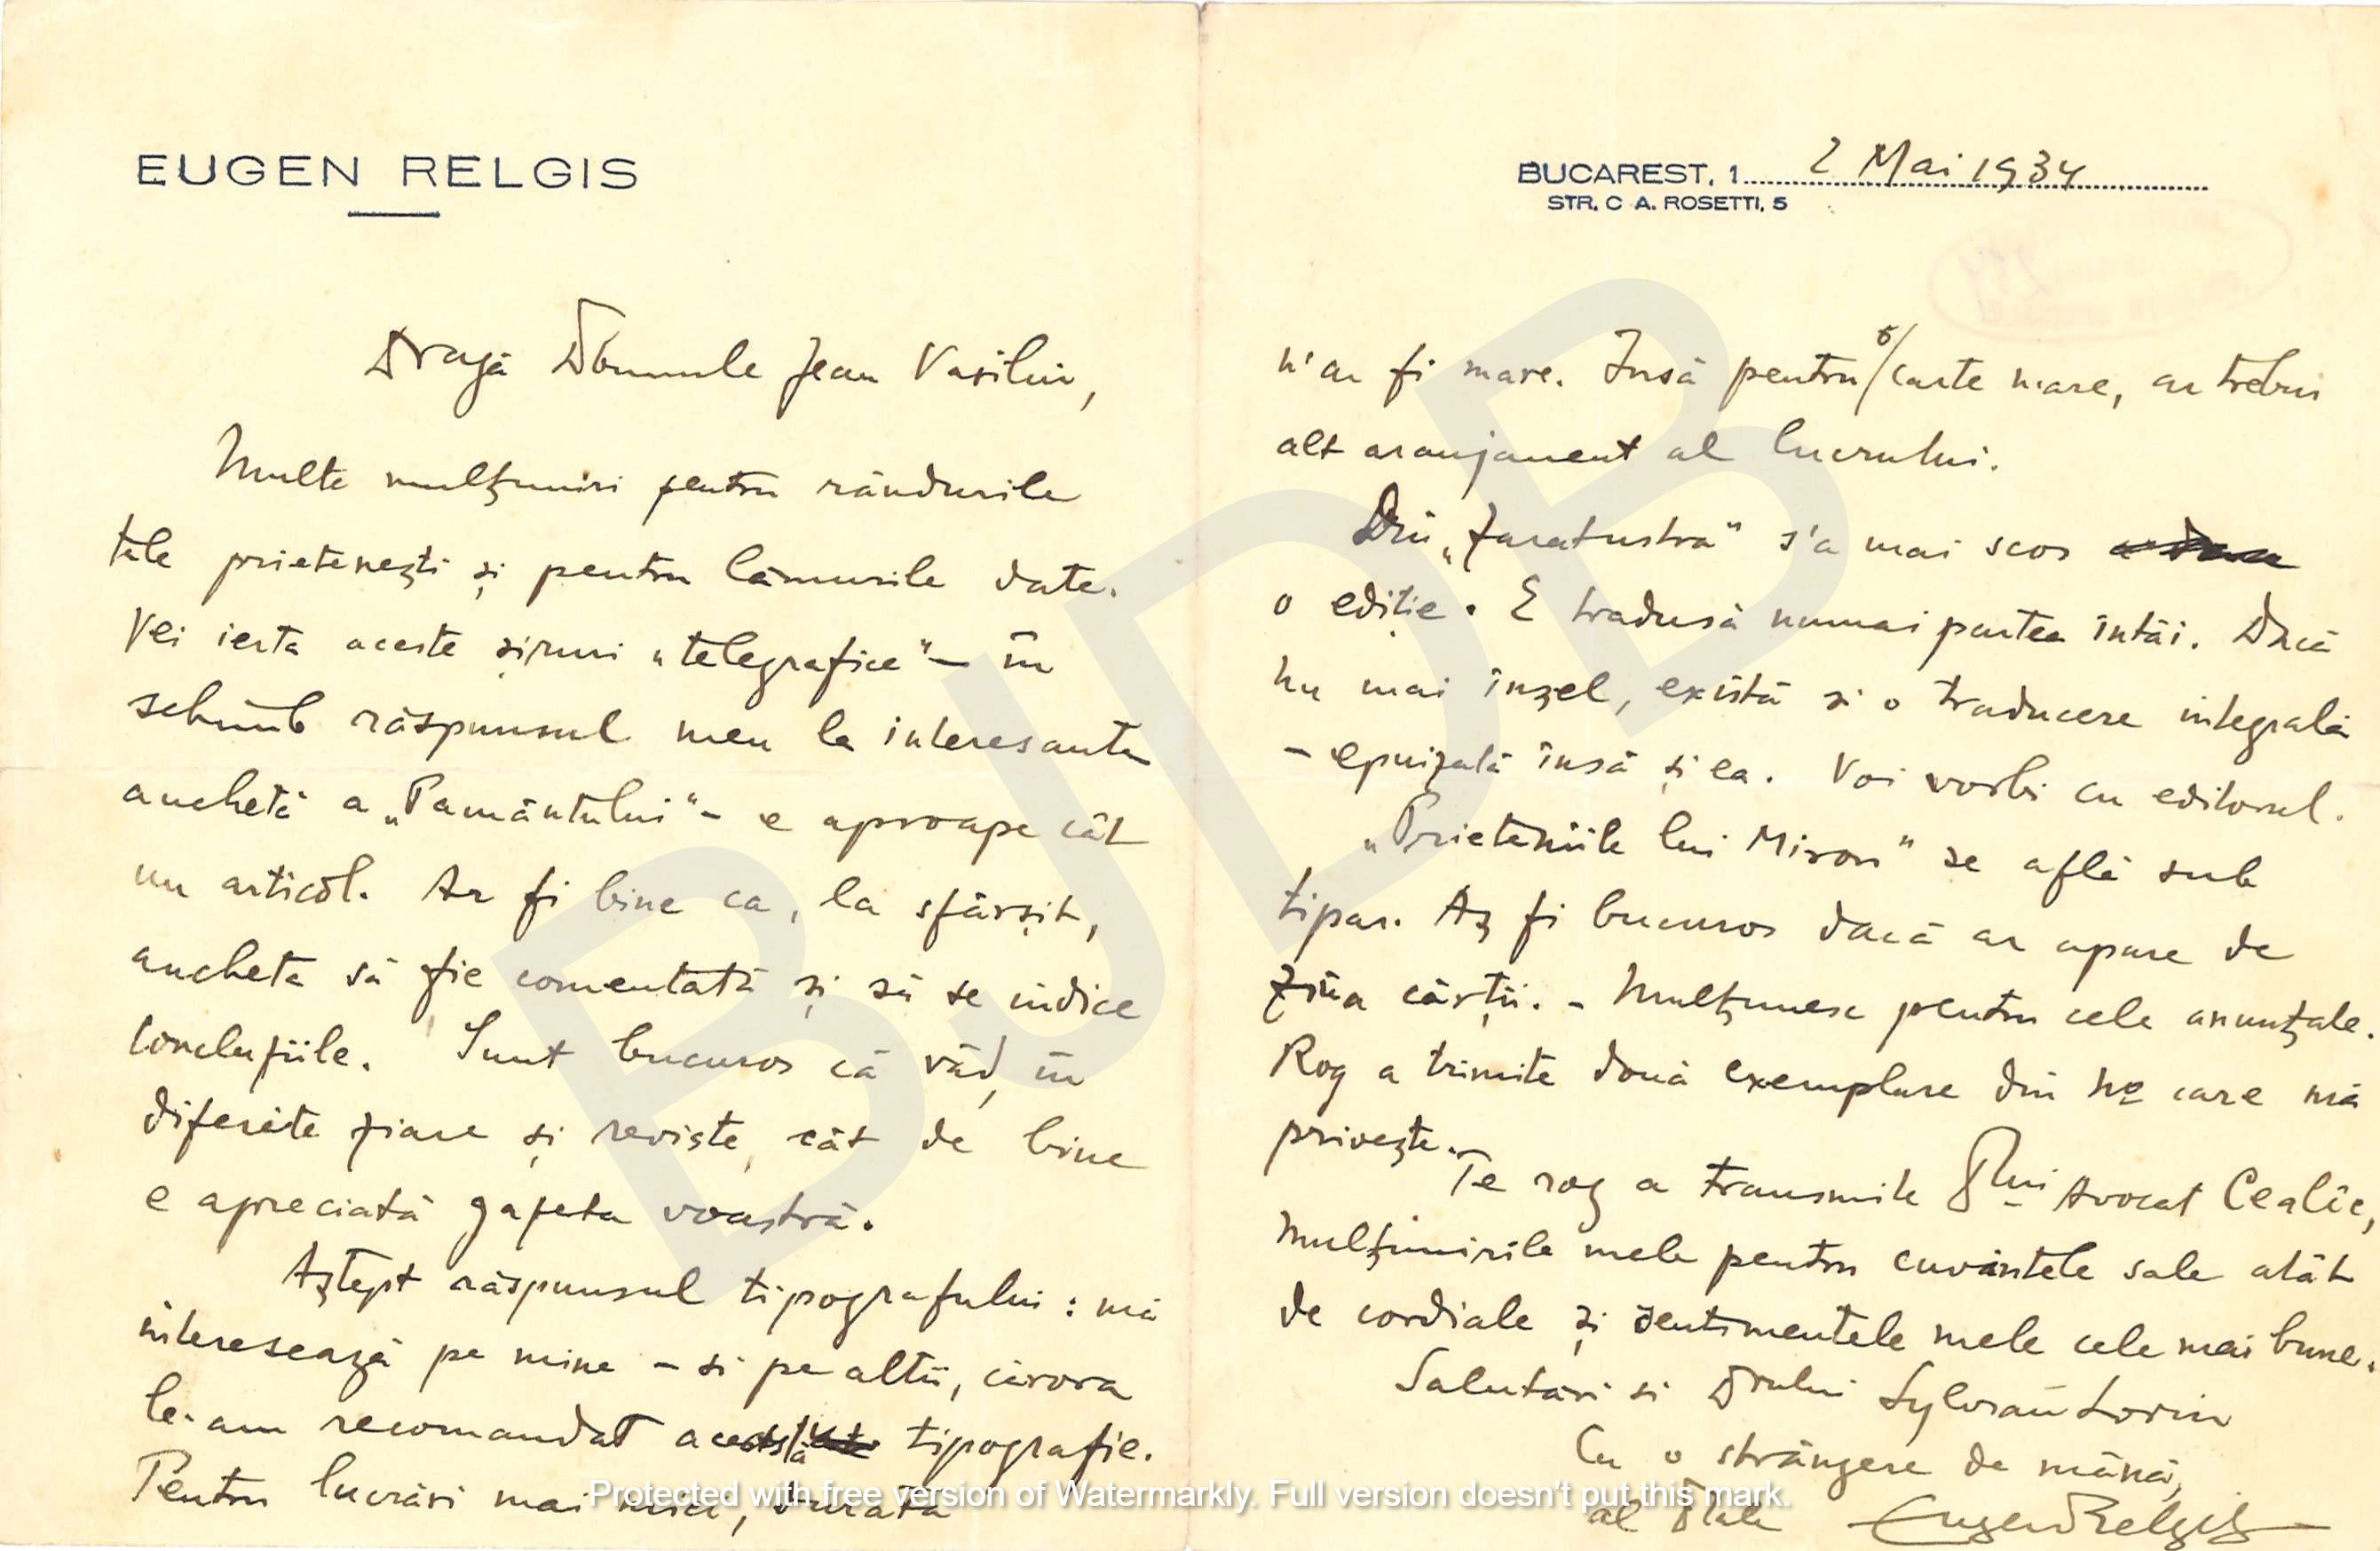 EUGEN RELGIS
Dragă Domnule Jean Vasiliu,
Multe mulțumiri pentru rândurile
tale prietenești și pentru lămurirle date.
Vei ierta aceste șiruri „telegrafice" – în
schimb răspunsul meu la interesanta
anchetă a „Pământului" – e aproape cât
un articol. Ar fi bine ca, la sfârșit,
ancheta să fie comentată și să se indice
concluziile. Sunt bucuros că văd, în
diferite ziare și reviste, cât de bine
e apreciată gazeta voastră.
Aștept răspunsul tipografului: mă
interesează pe mine – și pe alții, cărora
le-am recomandat această tipografie.
Pentru lucrări mai mici, durata
BUCAREST, 1 2 Mai 1934
STR. C A. ROSETTI, 5
n'ar fi mare. Însă pentru o carte mare, ar trebui
alt aranjament al lucrului.
Din „Zaratustra" s'a mai scos
o ediție. E tradusă numai partea întâi. Dacă
nu mai înșel, există și o traducere integrală
– epuizată însă și ea. Voi vorbi cu editorul.
„Prieteniile lui Miron" se află sub
tipar. Aș fi bucuros dacă ar apare de
Ziua cărții. – Mulțumesc pentru cele anunțate.
Rog a trimite două exemplare din No care mă
privește.
Te rog a transmite Dlui Avocat Cealîc,
mulțumirile mele pentru cuvintele sale atât
de cordiale și sentimentele mele cele mai bune.
Salutări și Drului Sylvan Lorin
Cu o strângere de mână,
al Dtale Eugen Relgis
BJDB
Protected with free version of Watermarkly. Full version doesn't put this mark.